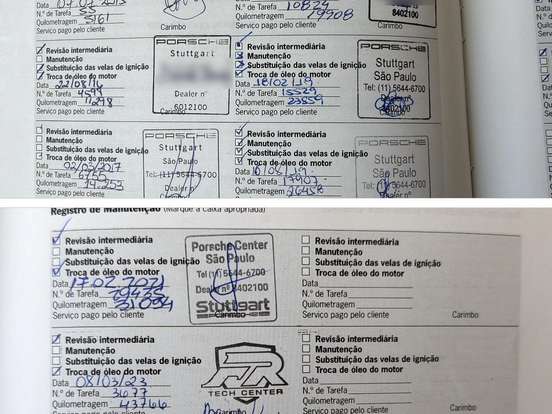 Data 07.07.2015
N.º de Tarefa 55
Quilometragem 5161
Serviço pago pelo cliente
Carimbo
N.º de Tarefa 10824
Quilometragem 19908
Serviço pago pelo cliente
Carimbo
8402100
Revisão intermediária
Manutenção
Substituição das velas de ignição
Troca de óleo do motor
Data 22/08/16
N.º de Tarefa 4599
Quilometragem 7298
Serviço pago pelo cliente
Carimbo
PORSCHE
Stuttgart
Dealer nº
6012100
Revisão intermediária
Manutenção
Substituição das velas de ignição
Troca de óleo do motor
Data 18/02/19
N.º de Tarefa 15529
Quilometragem 23559
Serviço pago pelo cliente
Carimbo
PORSCHE
Stuttgart
São Paulo
Tel: (11) 5644-6700
Dealer nº
8402100
Revisão intermediária
Manutenção
Substituição das velas de ignição
Troca de óleo do motor
Data 02/03/2017
N.º de Tarefa 6755
Quilometragem 14.253
Serviço pago pelo cliente
PORSCHE
Stuttgart
São Paulo
Tel: (11) 5644-6700
Dealer nº
Revisão intermediária
Manutenção
Substituição das velas de ignição
Troca de óleo do motor
Data
N.º de Tarefa 17907
Quilometragem 26458
Serviço pago pelo cliente
PORSCHE
Stuttgart
São Paulo
Tel: (11) 5644-6700
Dealer nº
Registro de Manutenção (Marque a caixa apropriada)
Revisão intermediária
Manutenção
Substituição das velas de ignição
Troca de óleo do motor
Data 17.02.2021
N.º de Tarefa
Quilometragem
Serviço pago pelo cliente
Carimbo
Porsche Center
São Paulo
Tel (11) 5644-6700
Dealer nº 8402100
Stuttgart
Revisão intermediária
Manutenção
Substituição das velas de ignição
Troca de óleo do motor
Data
N.º de Tarefa
Quilometragem
Serviço pago pelo cliente
Carimbo
Revisão intermediária
Manutenção
Substituição das velas de ignição
Troca de óleo do motor
Data 08/03/23
N.º de Tarefa 3677
Quilometragem 43766
Serviço pago pelo cliente
Carimbo
TECH CENTER
Revisão intermediária
Manutenção
Substituição das velas de ignição
Troca de óleo do motor
Data
N.º de Tarefa
Quilometragem
Serviço pago pelo cliente
Carimbo